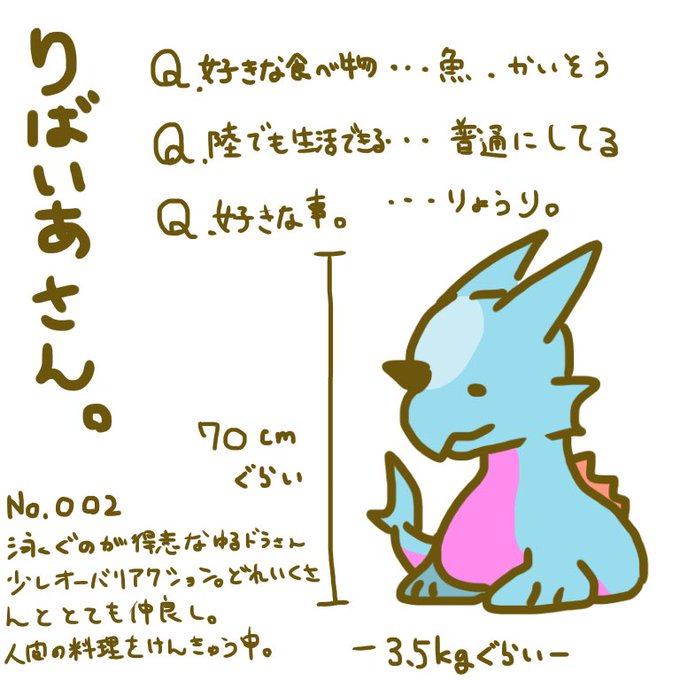 りばいあさん。
Q.好きな食べ物・・・魚、かいそう
Q.陸でも生活できる・・・普通にしてる
Q.好きな事。・・・りょうり。
70cm
ぐらい
No.002
泳ぐのが得意なゆるドラさん
少しオーバリアクション。どれいくさ
んととても仲良し。
人間の料理をけんきゅう中。
ー3.5kgぐらいー